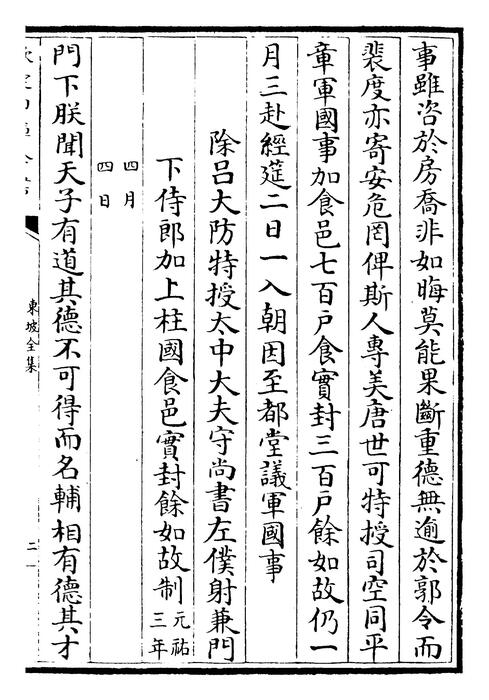 事雖咨於房喬非如晦莫能果斷重德無逾於郭令而
裴度亦寄安危罔俾斯人專美唐世可特授司空同平
章軍國事加食邑七百户食實封三百户餘如故仍一
月三赴經筵二日一入朝因至都堂議軍國事
除吕大防特授太中大夫守尚書左僕射兼門
下侍郎加上柱國食邑實封餘如故制元祐
三年
四月
四日
門下朕聞天子有道其德不可得而名輔相有德其才
東坡全集